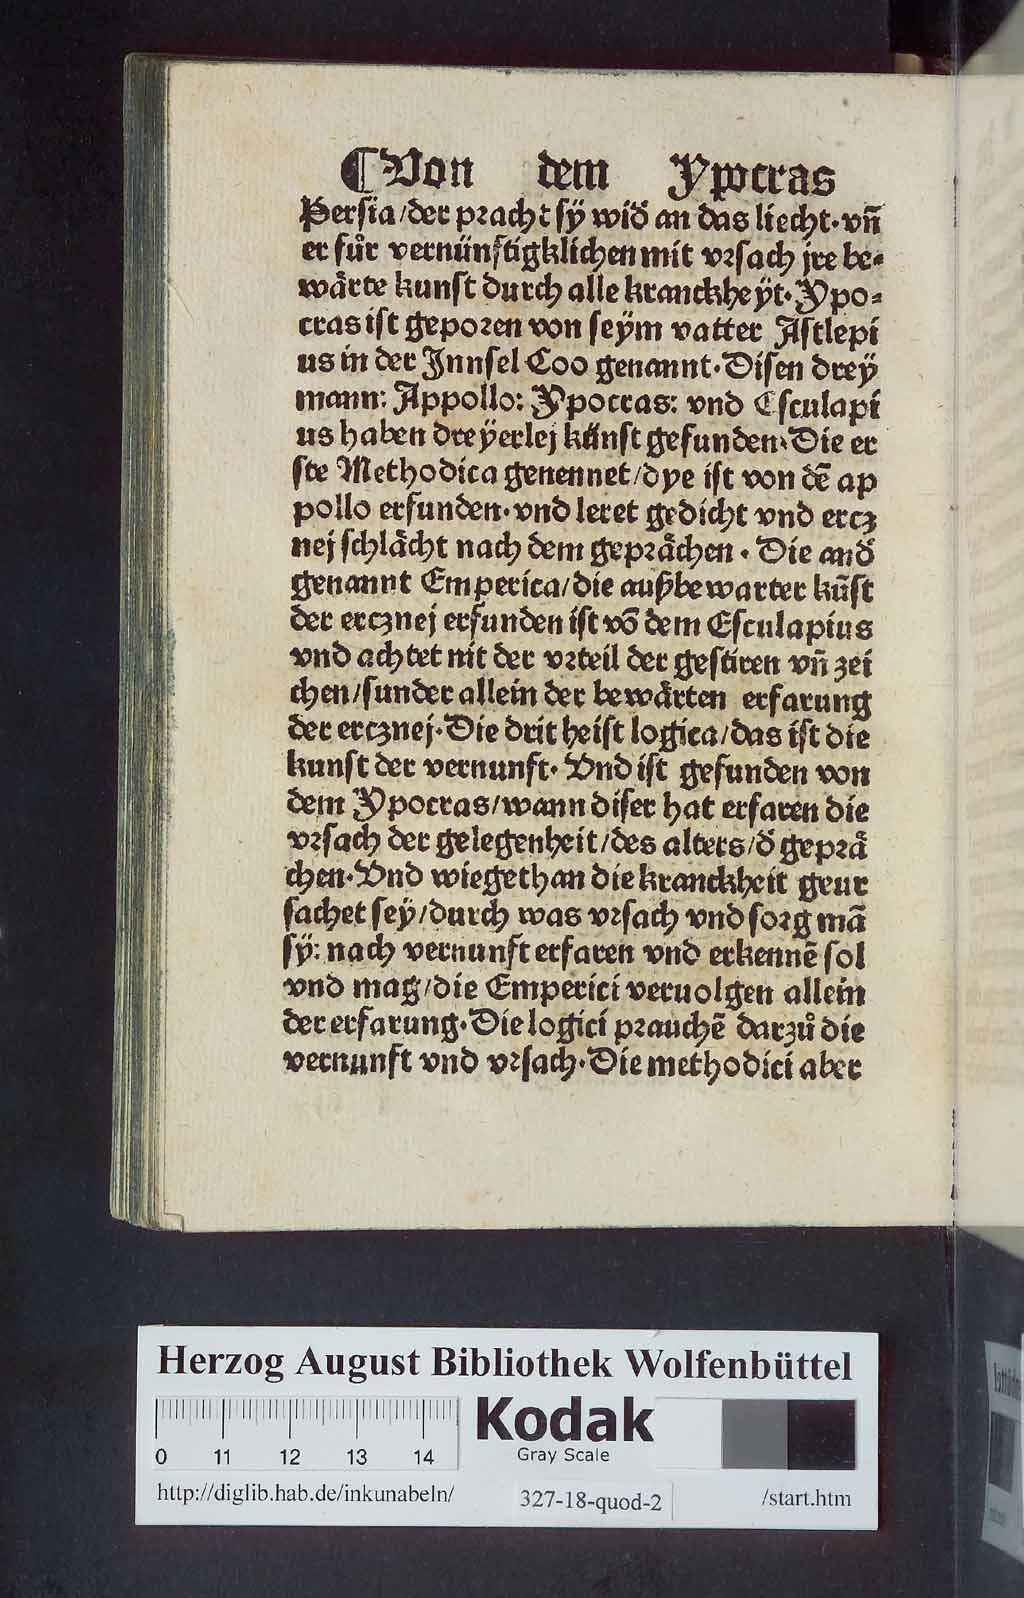 ¶Von dem Ypocras
Persia/der pracht sÿ wid̛ an das liecht·vn̄
er fůr vernünftigklichen mit vrsach jre be⸗
wårte kunst durch alle kranckheÿt·Ypo⸗
cras ist geporen von seÿm vatter Astlepi
us in der Innsel Coo genannt·Disen dreÿ
mann: Appollo: Ypocras: vnd Esculapi
us haben dreÿerlej künst gefunden·Die er
ste Methodica genennet/dye ist von dē ap
pollo erfunden·vnd leret gedicht vnd ercz
nej schlåcht nach dem gepråchen·Die and̛
genannt Emperica/die außbewarter kūst
der ercznej erfunden ist vō dem Esculapius
vnd achtet nit der vrteil der gestiren vn̄ zei
chen/sunder allein der bewårten erfarung
der ercznej·Die drit heist logica/das ist die
kunst der vernunft·Vnd ist gefunden von
dem Ypocras/wann diser hat erfaren die
vrsach der gelegenheit/des alters/d̛ geprå
chen·Vnd wiegethan die kranckheit geur
sachet seÿ/durch was vrsach vnd sorg mā
sÿ: nach vernunft erfaren vnd erkennē sol
vnd mag/die Emperici veruolgen allein
der erfarung·Die logici prauchē darzů die
vernunft vnd vrsach·Die methodici aber
Herzog August Bibliothek Wolfenbüttel
Kodak
Gray Scale
0 11 12 13 14
http://diglib.hab.de/inkunabeln/ 327-18-quod-2 /start.htm